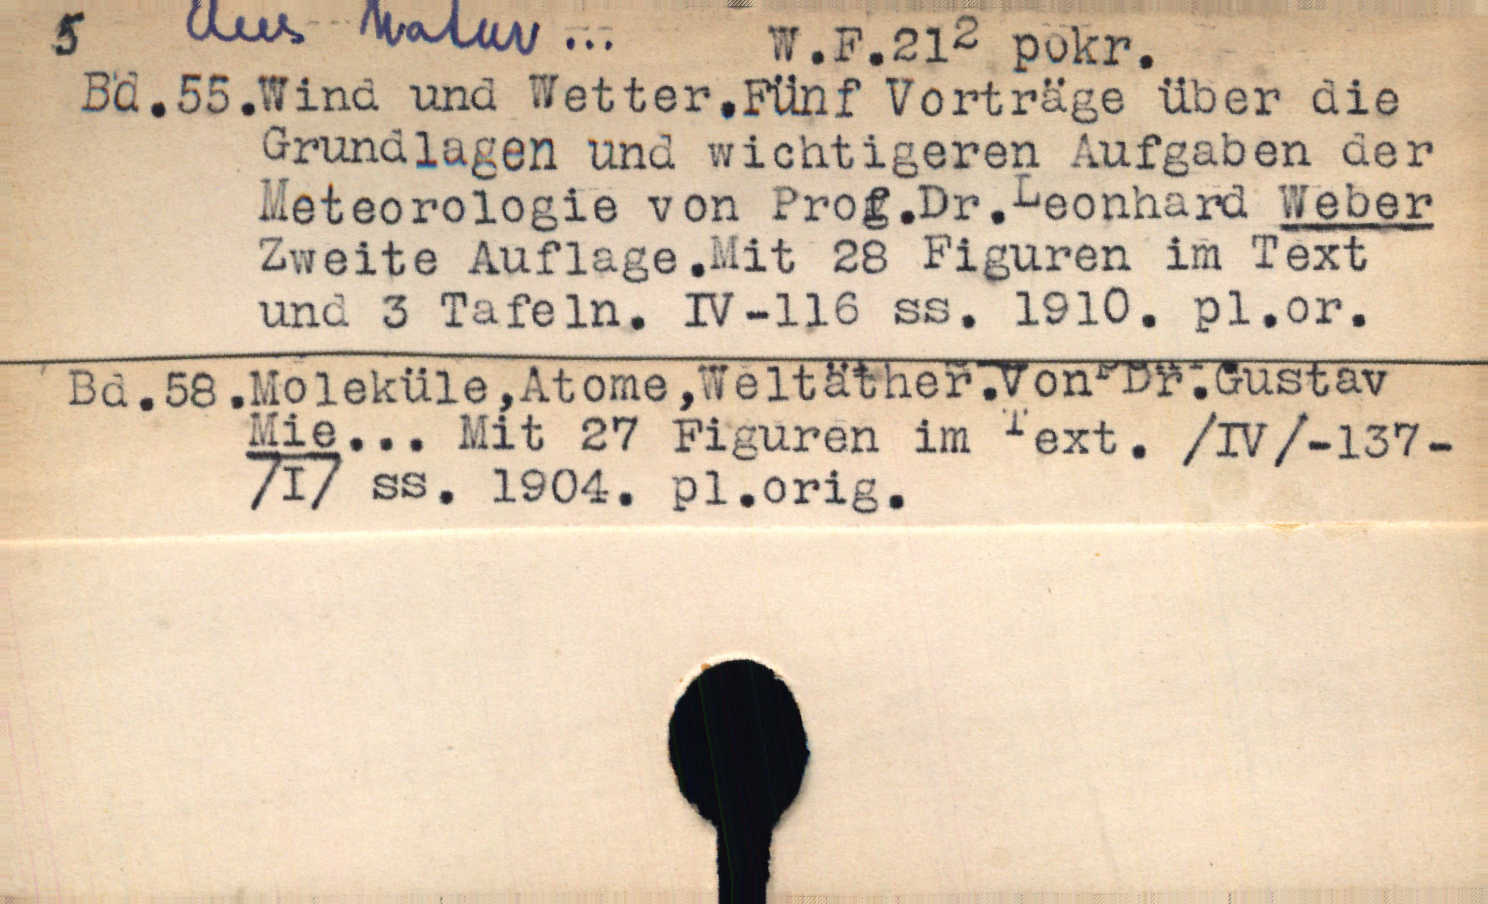 5 Aus Natur... W.F.21² pokr.
Bd.55.Wind und Wetter.Fünf Vorträge über die
Grundlagen und wichtigeren Aufgaben der
Meteorologie von Prof.Dr.Leonhard Weber
Zweite Auflage.Mit 28 Figuren im Text
und 3 Tafeln. IV-116 ss. 1910. pl.or.
Bd.58.Moleküle,Atome,Weltäther.Von Dr.Gustav
Mie... Mit 27 Figuren im Text. /IV/-137-
/I/ ss. 1904. pl.orig.